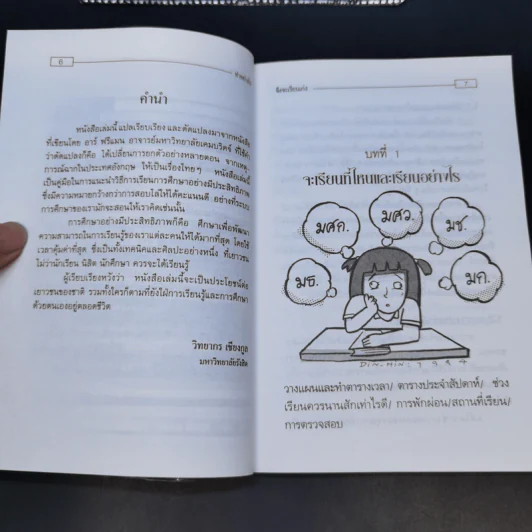 6
คำนำ
หนังสือเล่มนี้ แปลเรียบเรียง และดัดแปลงมาจากหนังสือ
ที่เขียนโดย อาร์ ฟรีแมน อาจารย์มหาวิทยาลัยเคมบริดจ์ ที่ใช้คำ
ว่าดัดแปลงก็คือ ได้เปลี่ยนการยกตัวอย่างหลายตอน จากเหตุ-
การณ์ฉากในประเทศอังกฤษ ให้เป็นเรื่องไทยๆ หนังสือเล่มนี้
เป็นคู่มือในการแนะนำวิธีการเรียนการศึกษาอย่างมีประสิทธิภาพ
ซึ่งมีความหมายกว้างกว่าการสอบไล่ให้ได้คะแนนดี อย่างที่ระบบ
การศึกษาของเรามักจะสอนให้เราคิดเช่นนั้น
การศึกษาอย่างมีประสิทธิภาพก็คือ ศึกษาเพื่อพัฒนา
ความสามารถในการเรียนรู้ของเราแต่ละคนให้ได้มากที่สุด โดยใช้
เวลาคุ้มค่าที่สุด ซึ่งเป็นทั้งเทคนิคและศิลปะอย่างหนึ่ง ที่เยาวชน
ไม่ว่านักเรียน นิสิต นักศึกษา ควรจะได้เรียนรู้
ผู้เรียบเรียงหวังว่า หนังสือเล่มนี้จะเป็นประโยชน์ต่อ
เยาวชนของชาติ รวมทั้งใครก็ตามที่ยังใฝ่การเรียนรู้และการศึกษา
ด้วยตนเองอยู่ตลอดชีวิต
วิทยากร เชียงกูล
มหาวิทยาลัยรังสิต
7
บทที่ 1
จะเรียนที่ไหนและเรียนอย่างไร
มศก.
มศว.
มช.
มธ.
มก.
DIN-HIN 1994
วางแผนและทำตารางเวลา/ ตารางประจำสัปดาห์/ ช่วง
เรียนควรนานสักเท่าไรดี/ การพักผ่อน/สถานที่เรียน/
การตรวจสอบ